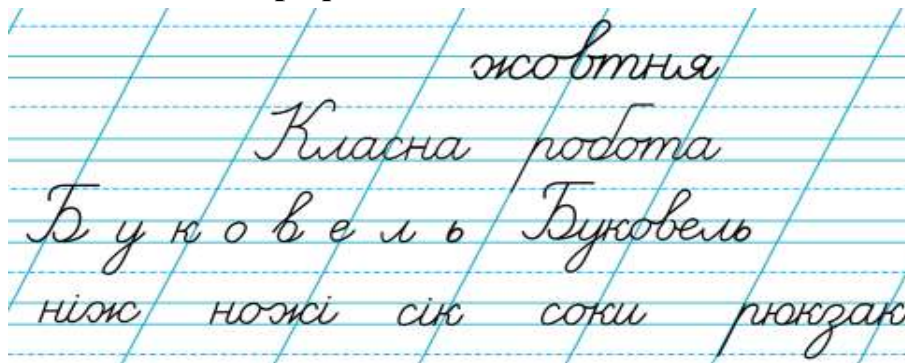 жовтня
Класна робота
Б у к о в е л ь Буковель
ніж ножі сік соки рюкзак